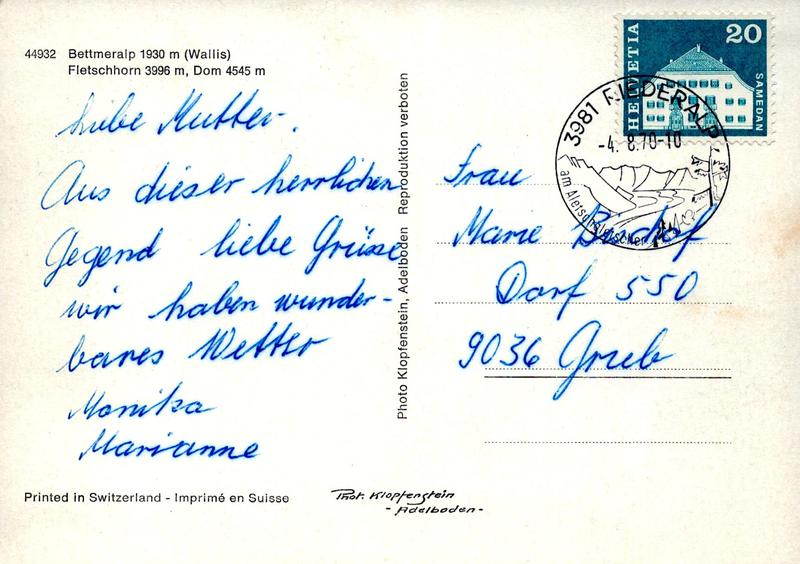 44932 Bettmeralp 1930 m (Wallis)
Fletschhorn 3996 m, Dom 4545 m
liebe Mutter.
Aus dieser herrlichen
Gegend liebe Grüsse
wir haben wunder-
bares Wetter
Monika
Marianne
Printed in Switzerland - Imprimé en Suisse
Phot. Klopfenstein
- Adelboden -
Photo Klopfenstein, Adelboden Reproduktion verboten
HELVETIA
20
SAMEDAN
3981 RIEDERALP
-4. 8.70-10
am Aletschgletscher
Frau
Marie Bischof
Dorf 550
9036 Grub